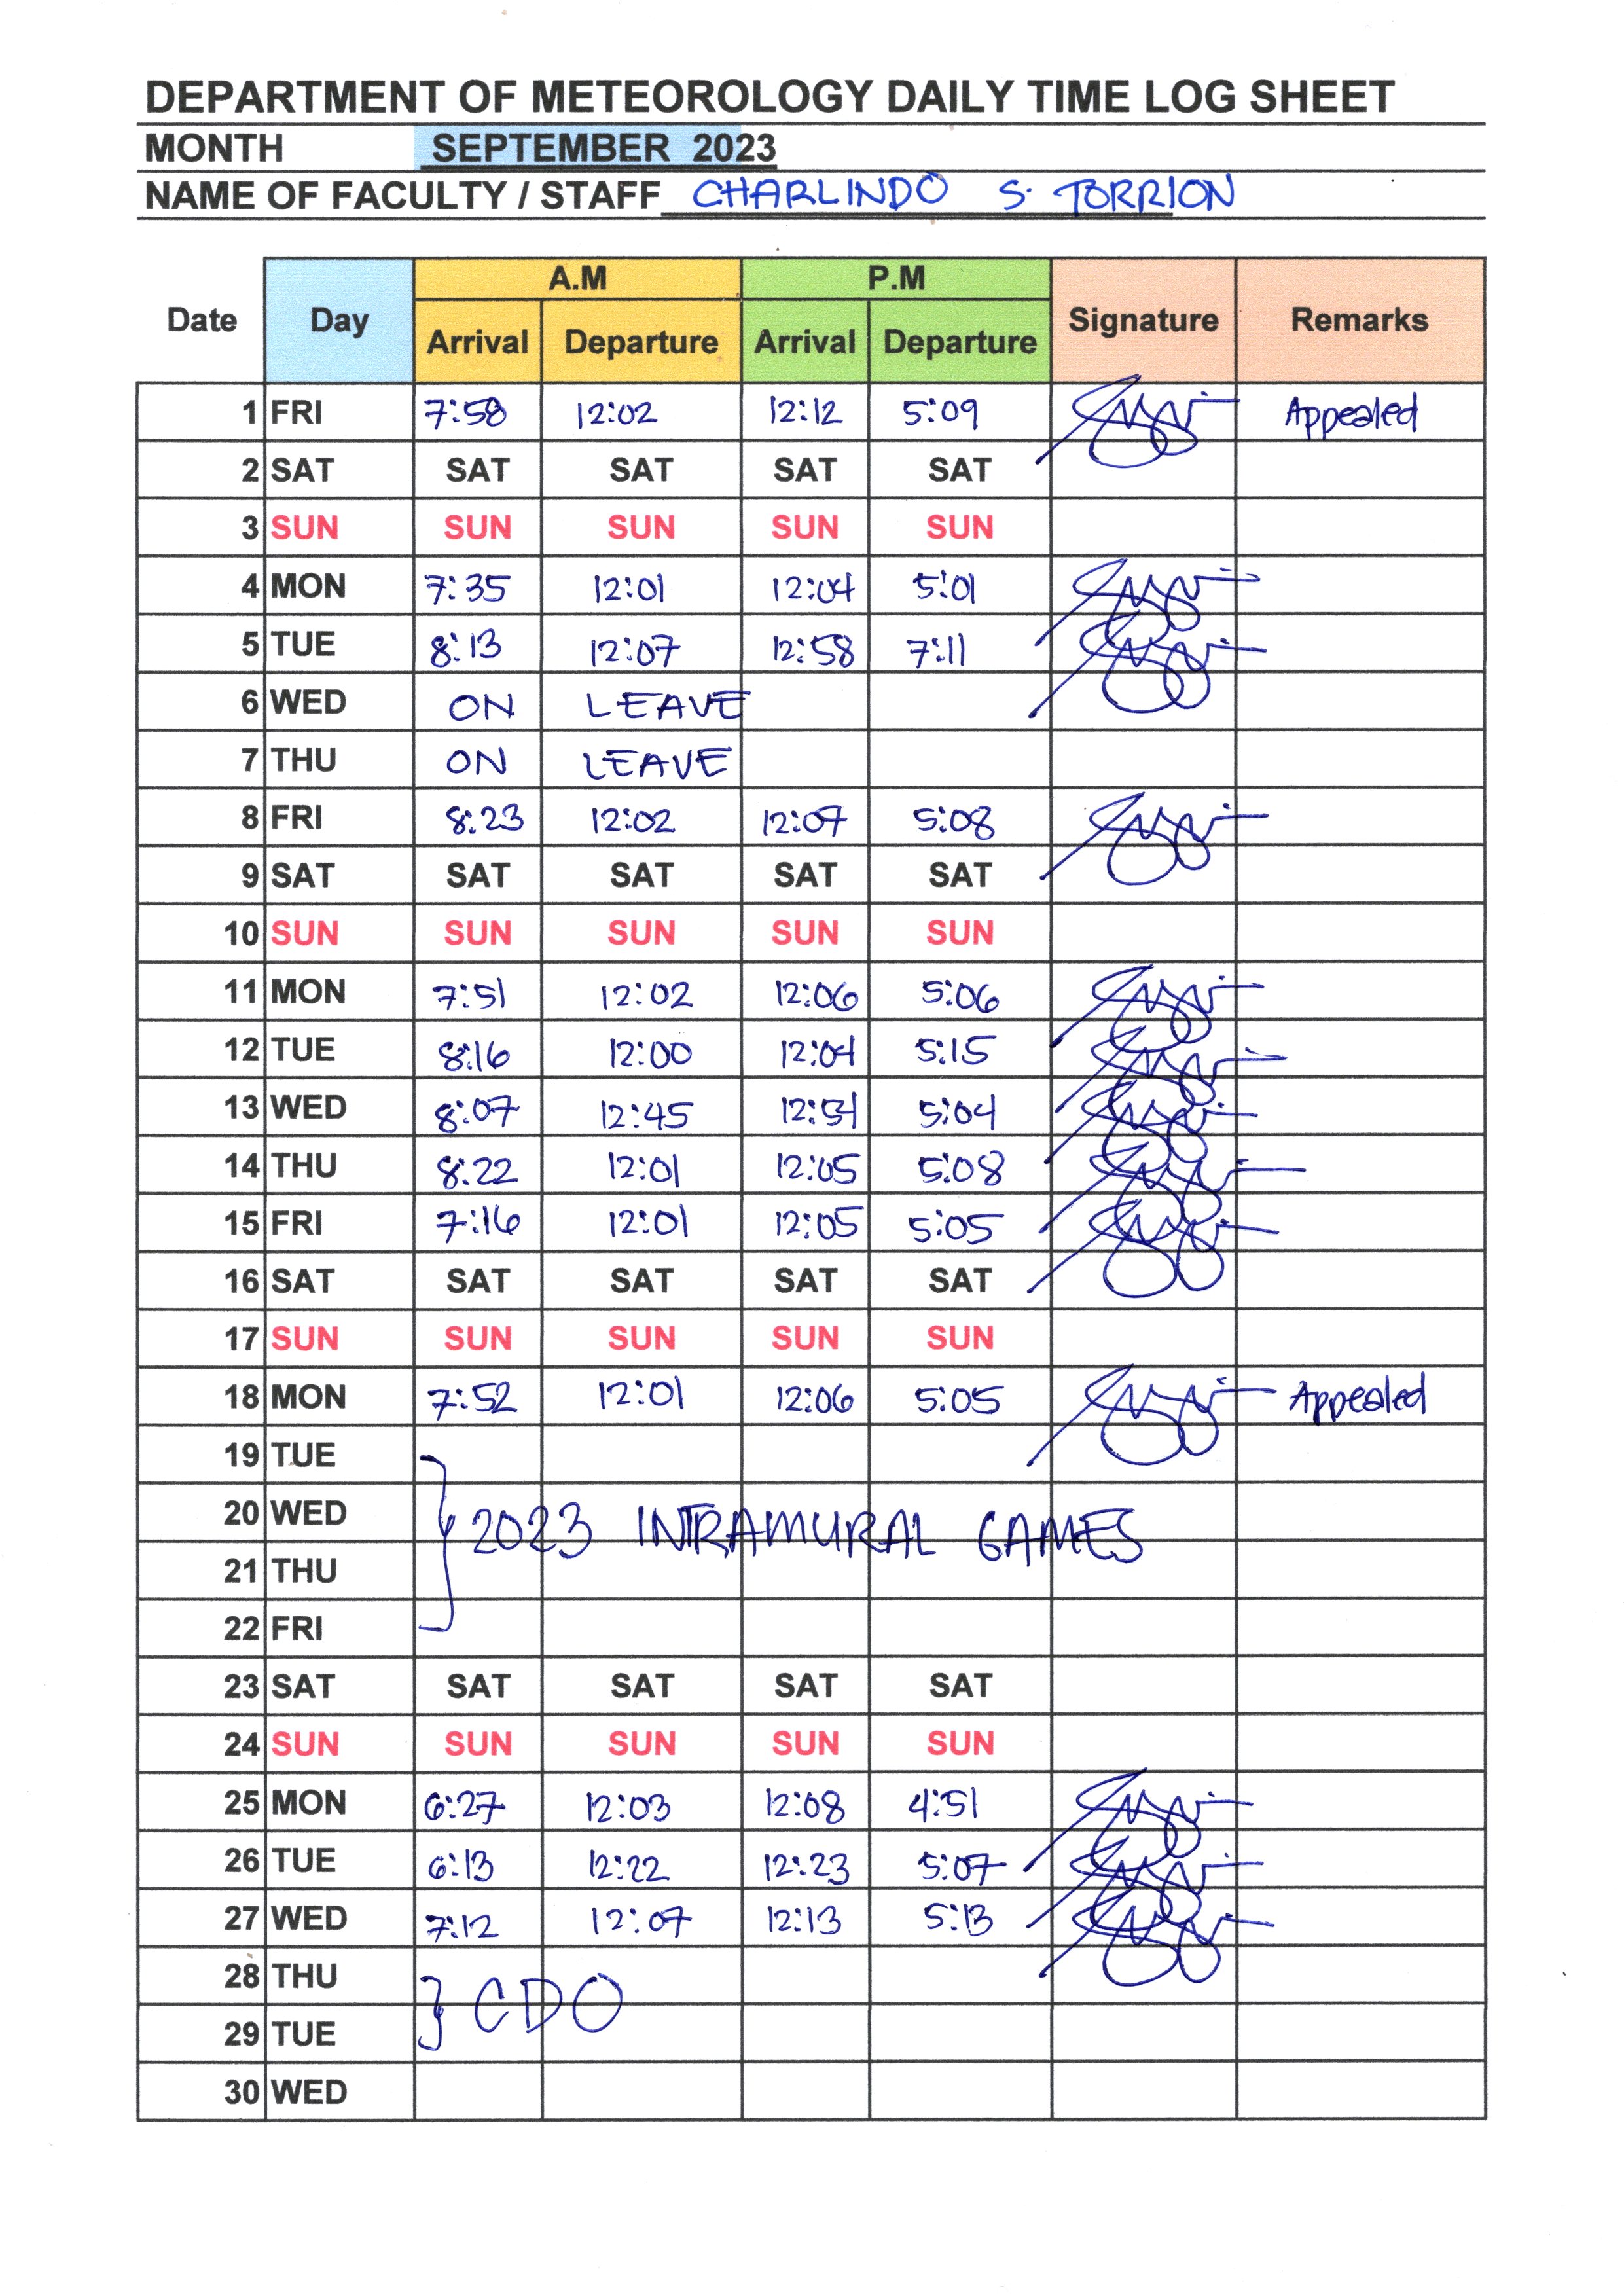 DEPARTMENT OF METEOROLOGY DAILY TIME LOG SHEET
MONTH SEPTEMBER 2023
NAME OF FACULTY / STAFF CHARLINDO S. TORRION
A.M P.M
Date Day Signature Remarks
Arrival Departure Arrival Departure
1 FRI 7:58 12:02 12:12 5:09 Appealed
2 SAT SAT SAT SAT SAT
3 SUN SUN SUN SUN SUN
4 MON 7:35 12:01 12:04 5:01
5 TUE 8:13 12:07 12:58 7:11
6 WED ON LEAVE
7 THU ON LEAVE
8 FRI 8:23 12:02 12:07 5:08
9 SAT SAT SAT SAT SAT
10 SUN SUN SUN SUN SUN
11 MON 7:51 12:02 12:06 5:06
12 TUE 8:16 12:00 12:04 5:15
13 WED 8:07 12:45 5:04
14 THU 8:22 12:01 12:05 5:08
15 FRI 7:16 12:01 12:05 5:05
16 SAT SAT SAT SAT SAT
17 SUN SUN SUN SUN SUN
18 MON 7:52 12:01 12:06 5:05 Appealed
19 TUE
20 WED 2023 INTRAMURAL GAMES
21 THU
22 FRI
23 SAT SAT SAT SAT SAT
24 SUN SUN SUN SUN SUN
25 MON 6:27 12:03 12:08 4:51
26 TUE 6:13 12:22 12:23 5:07
27 WED 7:12 12:07 12:13 5:13
28 THU CDO
29 TUE
30 WED